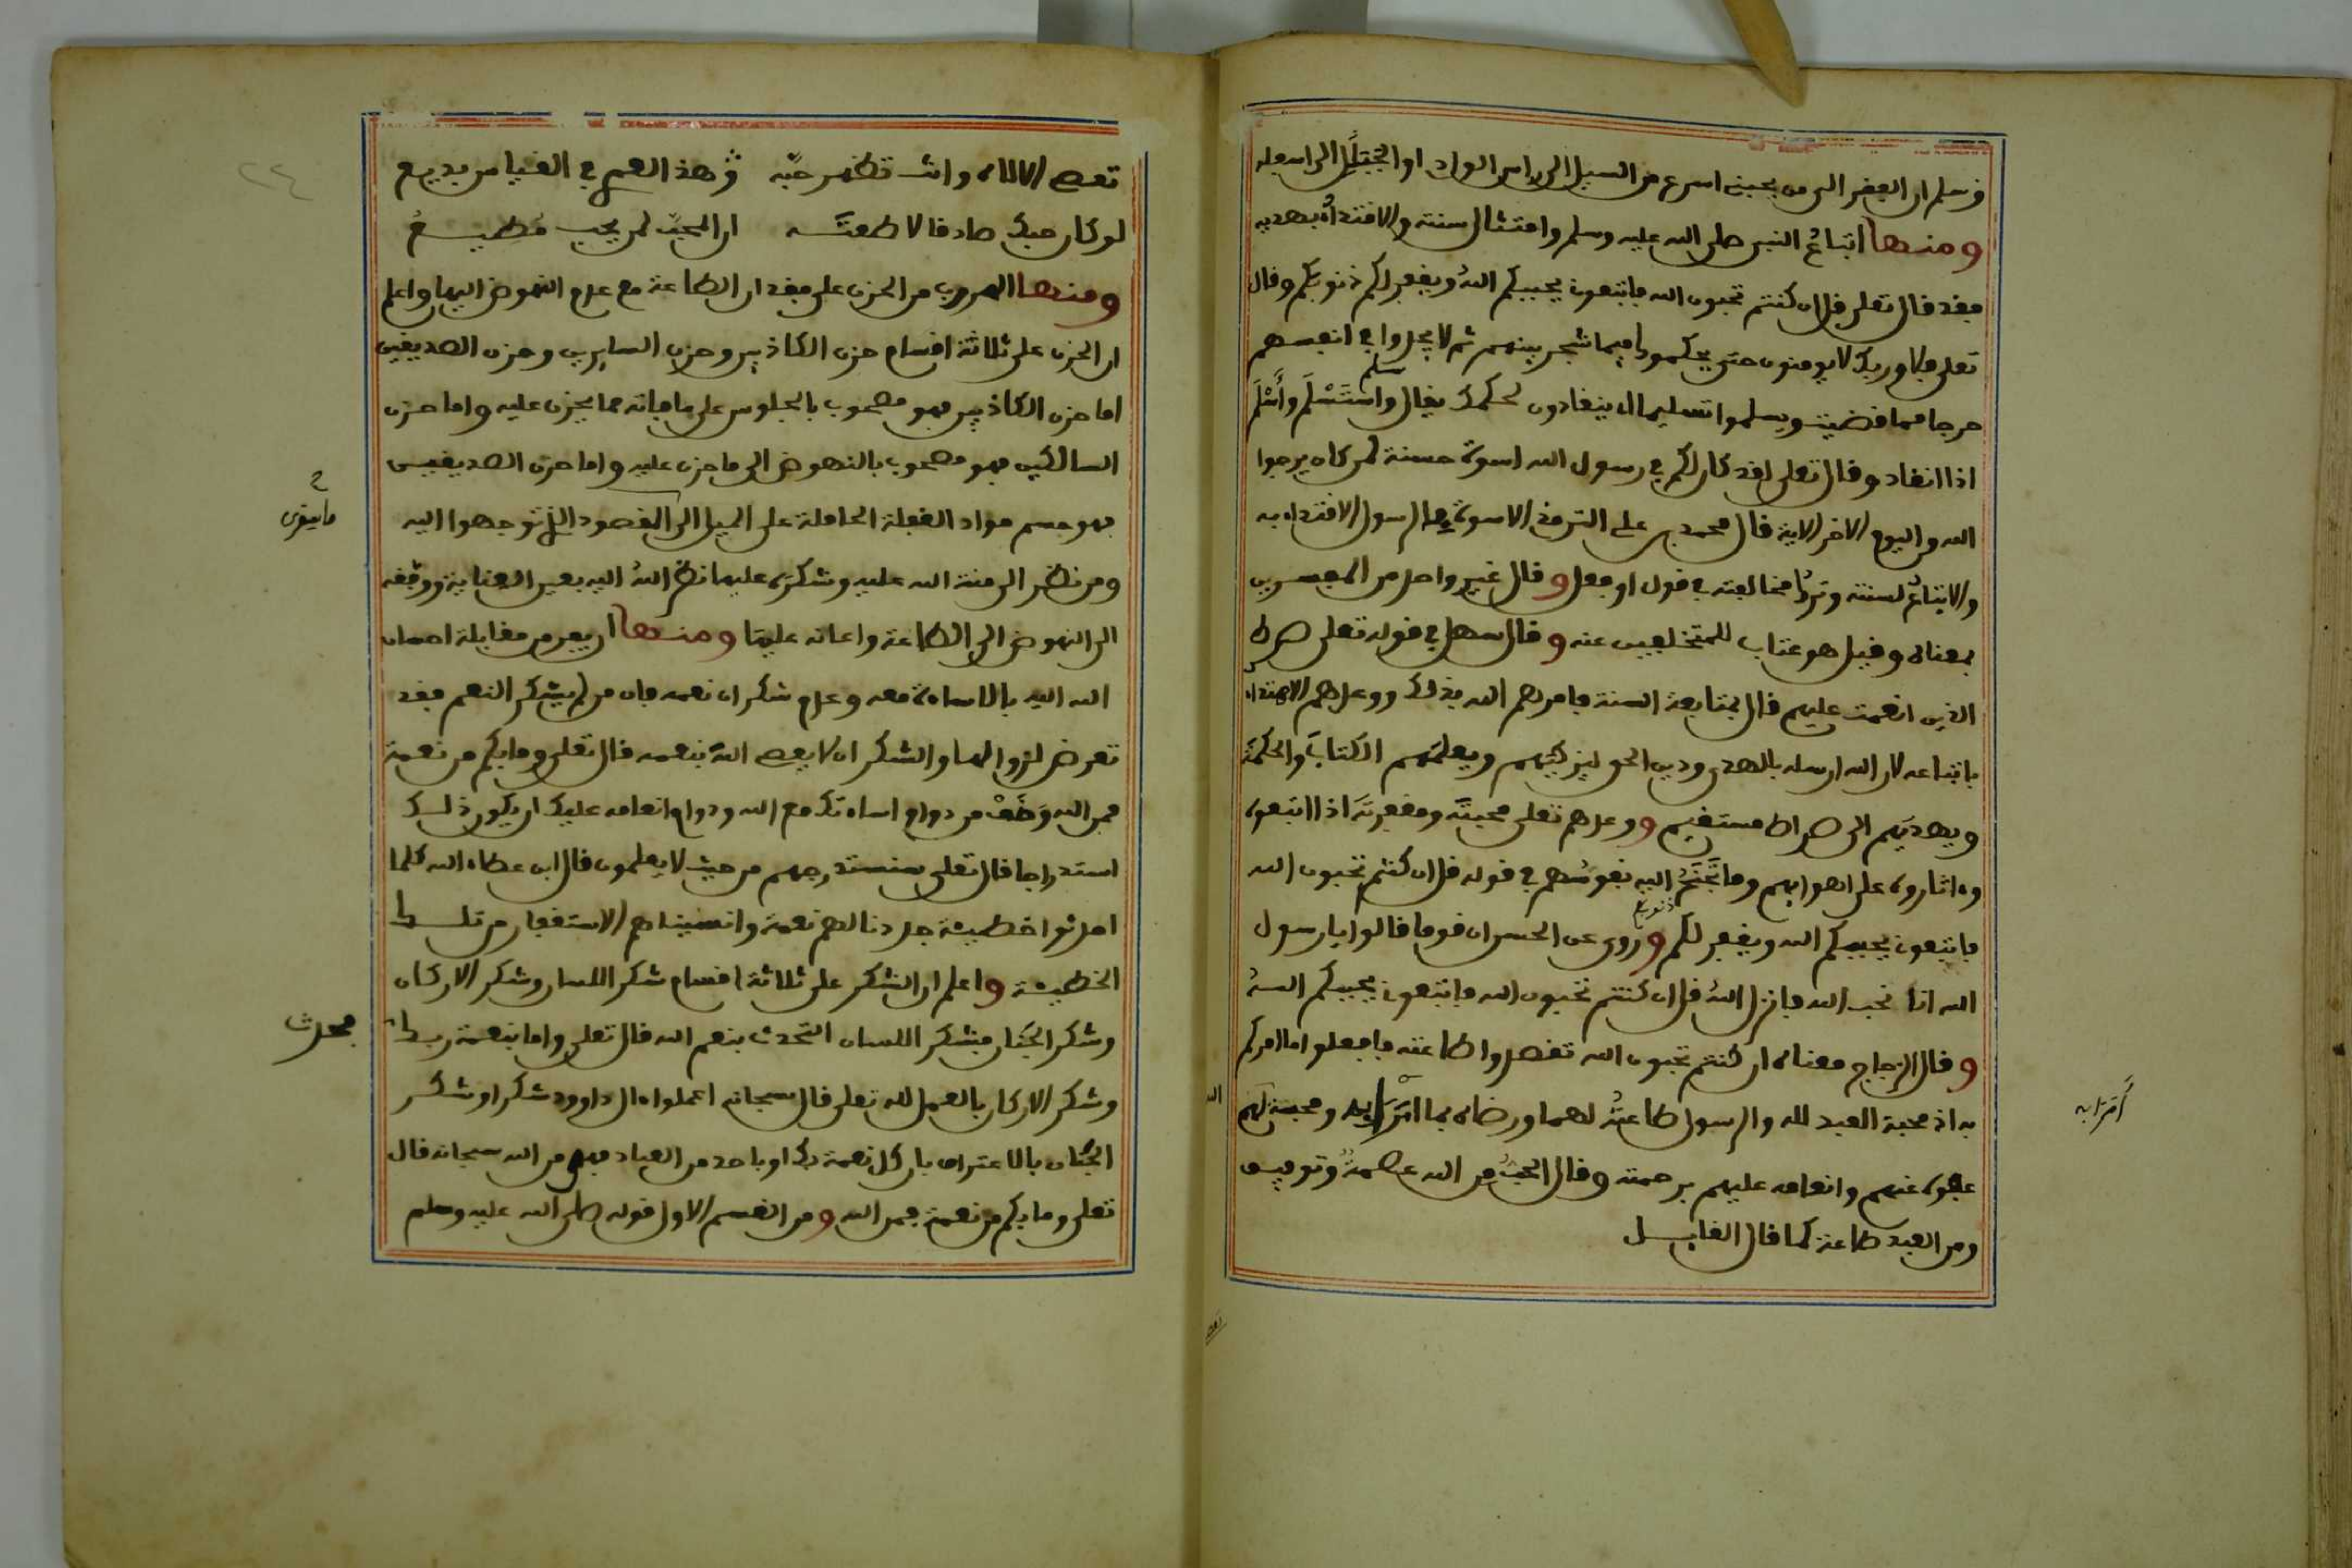 وسلم ان الفقر الى من يحبني اسرع من السيل الى راس الوادي او الجبل الى اسفله
ومنها اتباع النبي صلى الله عليه وسلم وامتثال سنته والاقتداء بهديه
فقد قال تعلى قل ان كنتم تحبون الله فاتبعوني يحببكم الله ويغفر لكم ذنوبكم وقال
تعلى فلا وربك لا يومنون حتى يحكموك فيما شجر بينهم ثم لا يجدوا في انفسهم
حرجا مما قضيت ويسلموا تسليما اي ينقادون لحكمك يقال سلم واستسلم وأسلم
اذا انقاد وقال تعلى لقد كان لكم في رسول الله اسوة حسنة لمن كان يرجوا
الله واليوم الاخر الاية قال محمد بن علي الترمذي الاسوة في الرسول الاقتداء به
والاتباع لسنته وترك مخالفته في قول او فعل وقال غير واحد من المفسرين
بمعناه وقيل هو عتاب للمتخلفين عنه وقال سهل في قوله تعلى صراط
الذين انعمت عليهم قال بمتابعة السنة فامرهم الله بذلك ووعدهم الاهتداء
باتباعه لان الله ارسله بالهدى ودين الحق ليزكيهم ويعلمهم الكتاب والحكمة
ويهديهم الى صراط مستقيم ووعدهم تعلى محبته ومغفرته اذا اتبعوه
وءاثاروه على اهوايهم وما تجنح اليه نفوسهم في قوله قل ان كنتم تحبون الله
فاتبعوني يحببكم الله ويغفر لكم ذنوبكم وروي عن الحسن ان قوما قالوا يا رسول
الله انا نحب الله فانزل الله قل ان كنتم تحبون الله فاتبعوني يحببكم الله
وقال الزجاج معناه ان كنتم تحبون الله تقصدوا طاعته فافعلوا ما امركم
به اذ محبة العبد لله والرسول طاعته لهما ورضاه بما امرا به ومحبة الله لهم
عفوه عنهم وانعامه عليهم برحمته وقال الحب من الله عصمة وتوفيق
ومن العبد طاعة كما قال القايل
أمرا به
تعصي الالاه وانت تظهر حبه هذا لعمري في القياس بديع
لو كان حبك صادقا لاطعته ان المحب لمن يحب مطيع
ومنها الهروب من الحزن على فقدان الطاعة مع عدم النهوض اليها واعلم
ان الحزن على ثلاثة اقسام حزن الكاذبين وحزن السايرين وحزن الصديقين
اما حزن الكاذبين فهو مصحوب بالجلوس على ما فاته مما يحزن عليه واما حزن
السالكين فهو مصحوب بالنهوض الى ما حزن عليه واما حزن الصديقين
فهو حسم مواد الغفلة الحاملة على الميل الى المقصود الذي توجهوا اليه
ومن نظر الى منة الله عليه وشكره عليها نظر الله اليه بعين العناية ووفقه
الى النهوض الى الطاعة واعانه عليها ومنها ان يفر من مقابلة احسان
الله اليه بالاساءة معه وعدم شكران نعمه فان من لم يشكر النعم فقد
تعرض لزوالها والشكر ان لا يعصى الله بنعمه قال تعلى وما بكم من نعمة
فمن الله وخف من دوام اساءتك مع الله ودوام انعامه عليك ان يكون ذلك
استدراجا قال تعلى سنستدرجهم من حيث لا يعلمون قال ابن عطاء الله كلما
احدثوا خطيئة جددنا لهم نعمة وانسيناهم الاستغفار من تلك
الخطيئة واعلم ان الشكر على ثلاثة اقسام شكر اللسان وشكر الاركان
وشكر الجنان فشكر اللسان التحدث بنعم الله قال تعلى واما بنعمة ربك
فحدث
وشكر الاركان بالعمل لله تعلى قال سبحانه اعملوا ءال داوود شكرا وشكر
الجنان بالاعتراف بان كل نعمة بك او باحد من العباد فهي من الله سبحانه قال
تعلى وما بكم من نعمة فمن الله ومن القسم الاول قوله صلى الله عليه وسلم